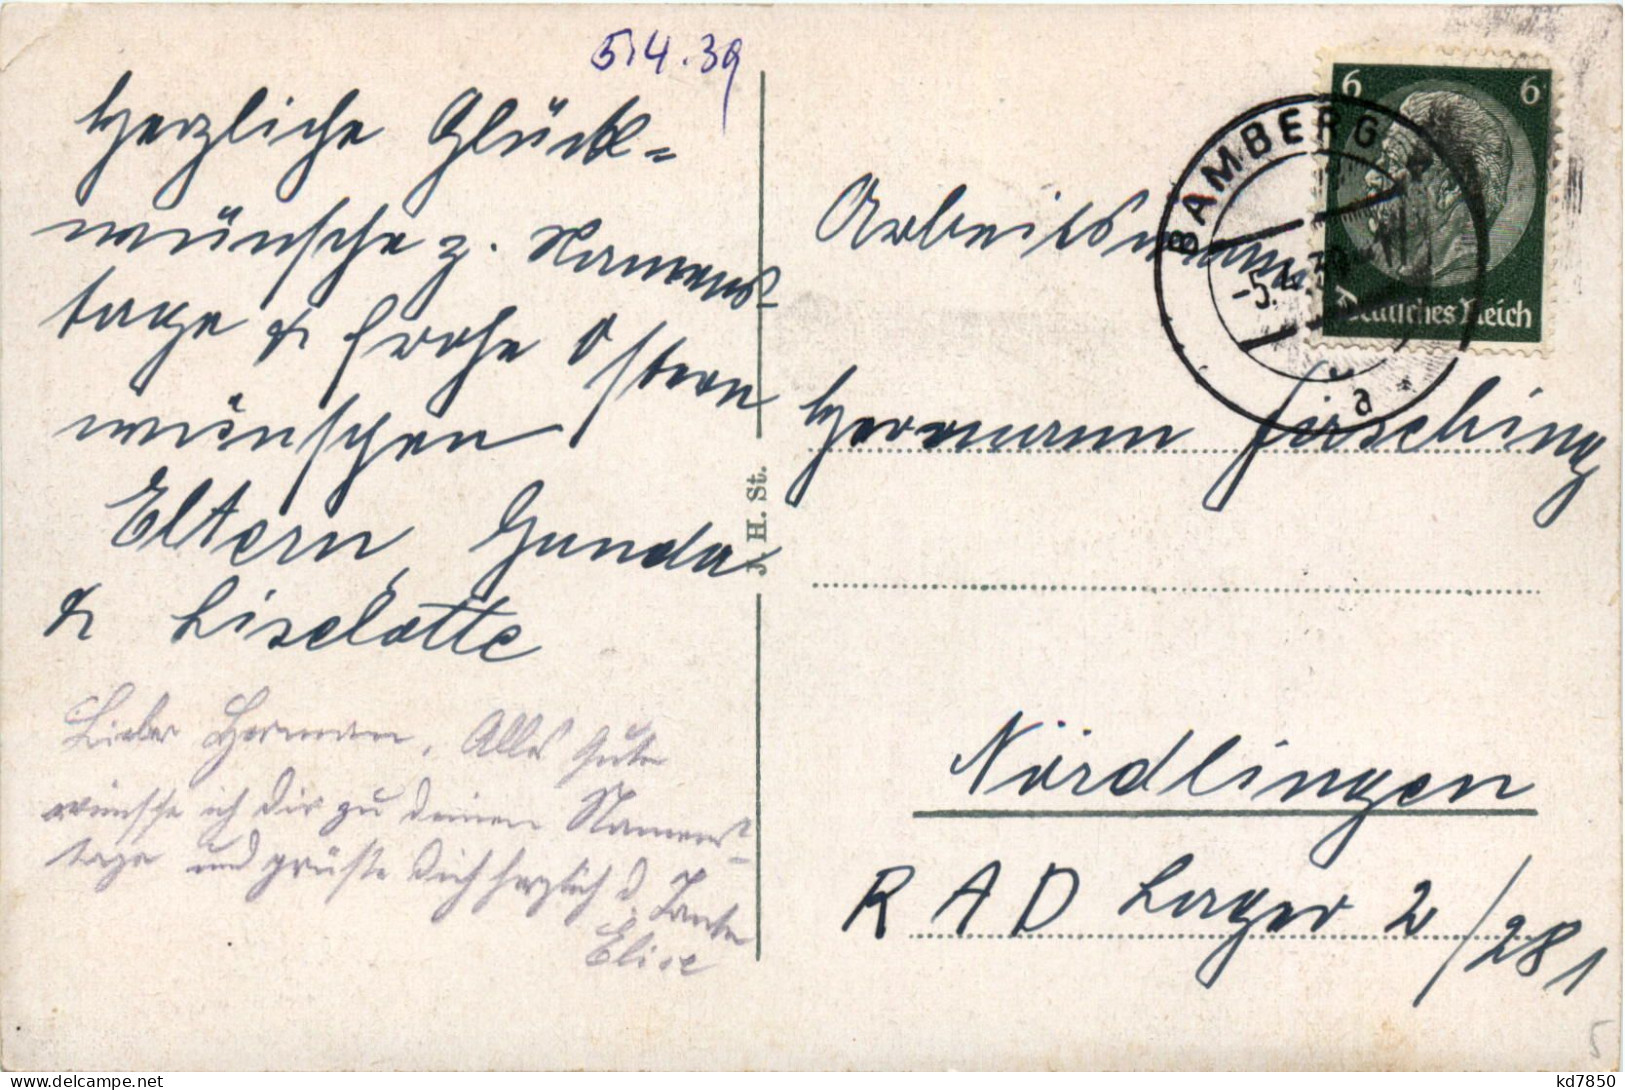 5.4.39
Herzliche Glück=
wünsche z. Namens-
tage & frohe Ostern
wünschen
Eltern, Gunda
& Liselotte
Lieber Hermann, Alles Gute
wünsche ich Dir zu deinen Namens-
tage und grüße Dich herzlich d. Tante
Elise
J. H. St.
6 6
Deutsches Reich
BAMBERG 2
-5.4.39
a *
Arbeitsmann
Hermann Firsching
Nördlingen
R A D Lager 2/281
5
kd7850